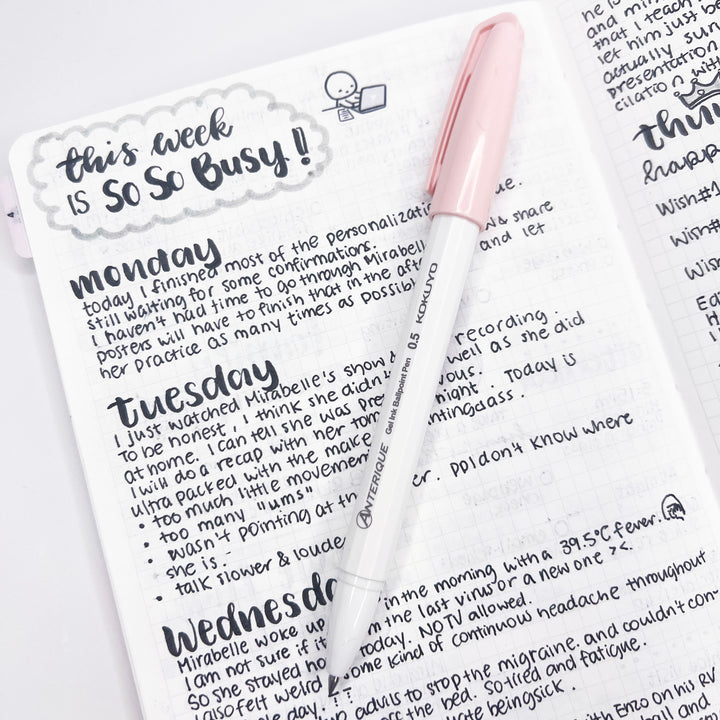 this week
IS So So Busy!
monday
today I finished most of the personalizatio ue.
still waiting for some confirmations.
I haven't had time to go through Mirabell & share
posters will have to finish that in the afte and let
her practice as many times as possibl
Tuesday
I just watched Mirabelle's show & recording.
To be honest, I think she didn't well as she did
at home. I can tell she was pre vous.
I will do a recap with her tom night. Today is
ultra packed with the make intingclass.
• too much little movemen
• too many "ums"
• wasn't pointing at th er. ppl don't know where
she is.
• talk slower & loude
Wednesda
Mirabelle woke up in the morning with a 39.5°C fever.
I am not sure if it m the last virus or a new one ><.
So she stayed ho today. NO TV allowed.
I also felt weird ome kind of continuow headache throughout
le day.
advils to stop the migraine. and couldn't con-
ss the bed. So tired and fatigue.
ate being sick.
with Enzo on his RV
ANTERIQUE Gel Ink Ballpoint Pen 0.5 KOKUYO
he is
and mir
that I teach
let him just be
actually sun
presentation
cilation with
thu
happ
Wish#1
Wish#
Wish